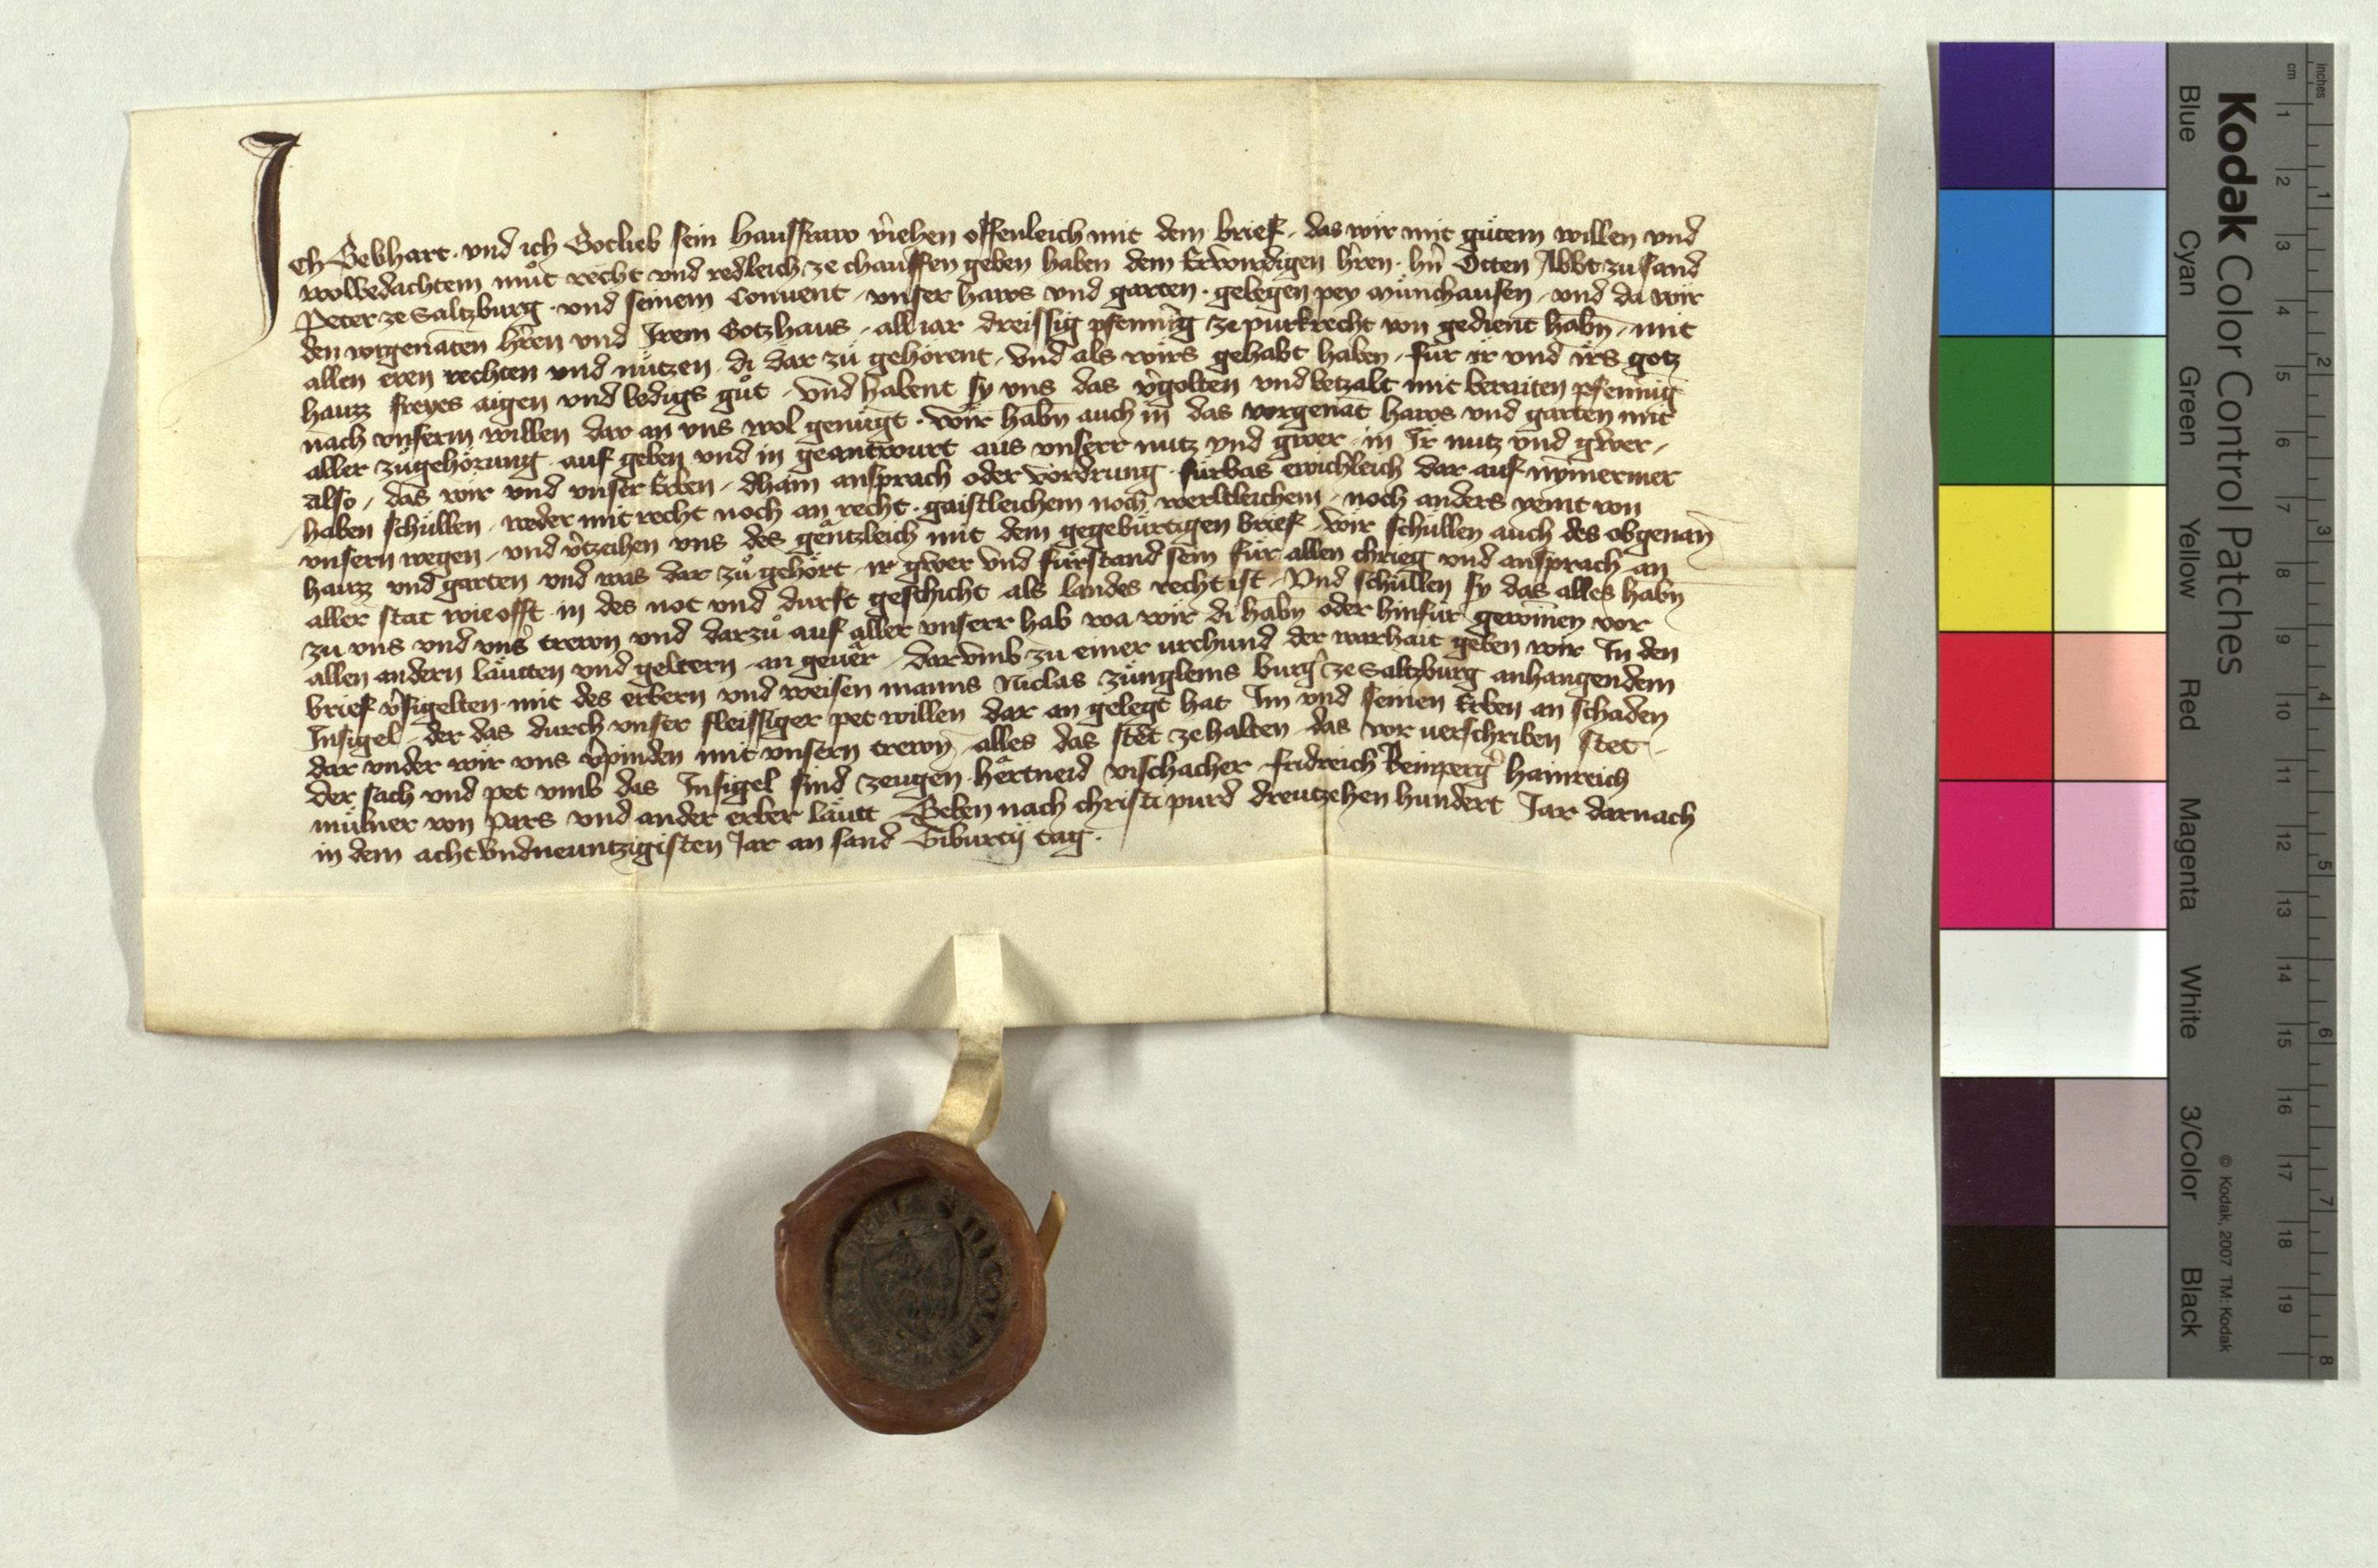 Ich Gebhart · vnd ich Gotlieb sein hausfraw v̉iehen offenleich mit dem brief · das wir mit gůtem willen vnd
wolbedachtem můt recht vnd redleich ze chauffen geben haben dem Erwirdigen h̉ren · hn̉ Otten Abbt zu sand
Peter ze Saltzburg · vnd seinem Conuent · vnser haws vnd garten · gelegen pey münchausen · vnd da wir
den vorgenāten h̉ren vnd Irem Gotzhaus · all iar dreissig pfenni̇g ze purkrecht von gedient habn̄ · mit
allen eren rechten vnd nützen di dar zů gehörent · vnd als wirs gehabt haben · für ir vnd irs gotz
hauzz freyes aigen vnd ledigs gůt · vnd habent sy vns das v̉golten vnd betzalt mit beraiten pfenni̇g
nach vnserm willen dar an vns wol genügt · wir habn̄ auch in das vorgenāt haws vnd garten mit
aller zůgehörung auf geben vnd in geantwurt aus vnserr nutz vnd gwer in Ir nutz vnd gwer ·
also / das wir vnd vnser Erben / dhain ansprach oder vordrung fürbas ewichleich dar auf nym̄ermer
haben schüllen / weder mit recht noch an recht · gaistleichem noch werltleichem / noch anders yemt von
vnsern wegen / vnd v̉tzeihen vns des gäntzleich mit dem gegebürtigen brief · wir schüllen auch des obgenan̄
hauzz vnd garten vnd was dar zů gehört ir gwer vnd fürstand sein für allen chrieg vnd ansprach an
aller stat wie offt in des not vnd durft geschicht als landes recht ist · Vnd schüllen sy das alles habn̄
zu vns vnd vns̉ trewn vnd darzů auf aller vnserr hab wa wir di habn̄ oder hinfür gewin̄en vor
allen andern läutten vnd geltern an geuär · Darvmb zu einer vrchund der warhait geben wir In den
brief v̉sigelten mit des erbern vnd weisen manns Niclas zünglems burg̉ ze Saltzburg anhangendem
Insigel · der das durch vnser fleissiger pet willen dar an gelegt hat Im vnd seinen Erben an schaden
dar vnder wir vns v̉pinden mit vnsern trewn alles das stet ze halten das vor uerschriben stet ·
Der sach vnd pet vmb das Insigel sind zeugen härtneid vischacher fridreich Reinperg̉ hainreich
mülner von Pars vnd ander erber läutt Geben nach christi purd dreutzehen hundert Jar darnach
in dem acht vndneuntzigisten Jar an sand Tiburcij tag ·
Kodak Color Control Patches
Blue Cyan Green Yellow Red Magenta White 3/Color Black
© Kodak, 2007 TM: Kodak
inches 1 2 3 4 5 6 7 8
cm 1 2 3 4 5 6 7 8 9 10 11 12 13 14 15 16 17 18 19